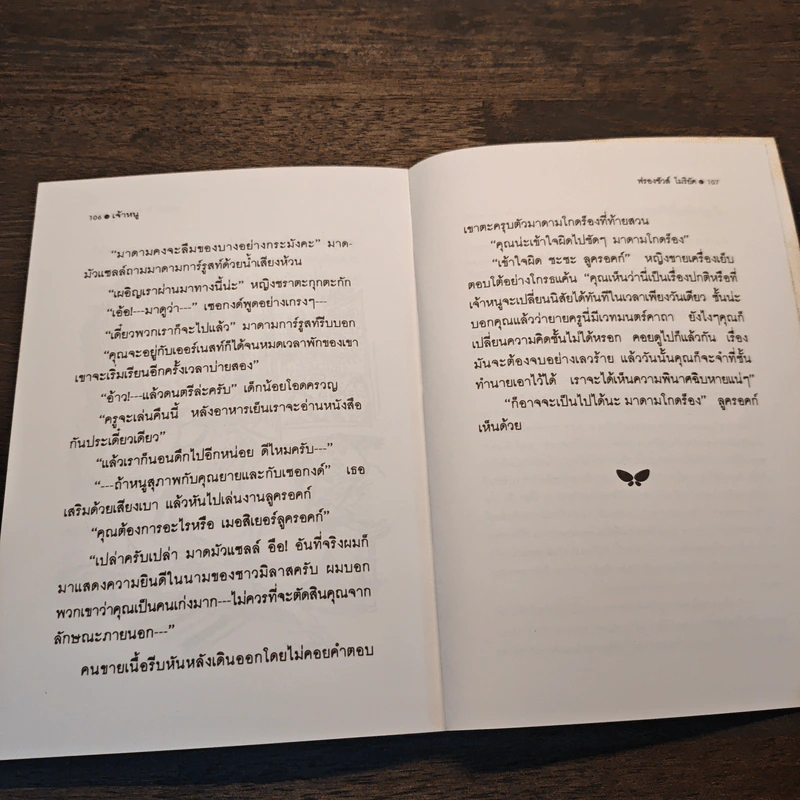 106 ● เจ้าหนู
“มาดามคงจะลืมของบางอย่างกระมังคะ” มาด-
มัวแซลล์ถามมาดามการ์รูสท์ด้วยน้ำเสียงห้วน
“เผอิญเราผ่านมาทางนี้น่ะ” หญิงชราตะกุกตะกัก
“เอ้อ!---มาดูว่า---” เซอกงด์พูดอย่างเกรงๆ---
“เดี๋ยวพวกเราก็จะไปแล้ว” มาดามการ์รูสท์รีบบอก
“คุณจะอยู่กับเออร์เนสท์ก็ได้จนหมดเวลาพักของเขา
เขาจะเริ่มเรียนอีกครั้งเวลาบ่ายสอง”
“อ้าว!---แล้วดนตรีล่ะครับ” เด็กน้อยโอดครวญ
“ครูจะเล่นคืนนี้ หลังอาหารเย็นเราจะอ่านหนังสือ
กันประเดี๋ยวเดียว”
“แล้วเราก็นอนดึกไปอีกหน่อย ดีไหมครับ---”
“---ถ้าหนูสุภาพกับคุณยายและกับเซอกงด์” เธอ
เสริมด้วยเสียงเบา แล้วหันไปเล่นงานลูครอคก์
“คุณต้องการอะไรหรือ เมอสิเยอร์ลูครอคก์”
“เปล่าครับเปล่า มาดมัวแซลล์ อือ! อันที่จริงผมก็
มาแสดงความยินดีในนามของชาวมิลาสครับ ผมบอก
พวกเขาว่าคุณเป็นคนเก่งมาก---ไม่ควรที่จะตัดสินคุณจาก
ลักษณะภายนอก---”
คนขายเนื้อรีบหันหลังเดินออกโดยไม่คอยคำตอบ
ฟรองซัวส์ โมริอัค ● 107
เขาตะครุบตัวมาดามโกดร็องที่ท้ายสวน
“คุณน่ะเข้าใจผิดไปชัดๆ มาดามโกดร็อง”
“เข้าใจผิด ชะชะ ลูครอคก์” หญิงขายเครื่องเย็บ
ตอบโต้อย่างโกรธแค้น “คุณเห็นว่านี่เป็นเรื่องปกติหรือที่
เจ้าหนูจะเปลี่ยนนิสัยได้ทันทีในเวลาเพียงวันเดียว ชั้นน่ะ
บอกคุณแล้วว่ายายครูนี่มีเวทมนตร์คาถา ยังไงๆคุณก็
เปลี่ยนความคิดชั้นไม่ได้หรอก คอยดูไปก็แล้วกัน เรื่อง
มันจะต้องจบอย่างเลวร้าย แล้ววันนั้นคุณก็จะจำที่ชั้น
ทำนายเอาไว้ได้ เราจะได้เห็นความพินาศฉิบหายแน่ๆ”
“ก็อาจจะเป็นไปได้นะ มาดามโกดร็อง” ลูครอคก์
เห็นด้วย